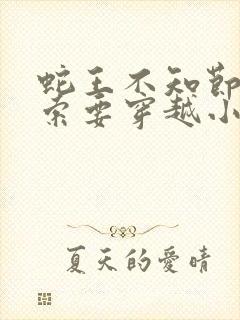 蛇王不知節
索要穿越小
夏天的愛晴